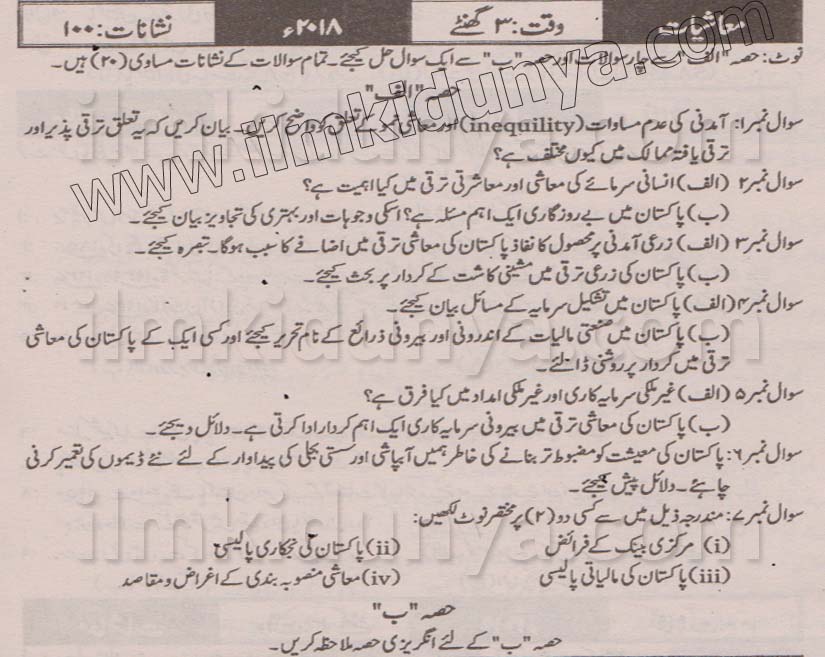 معاشیات وقت: ۳ گھنٹے ۲۰۱۸ء نشانات: ۱۰۰
نوٹ: حصہ "الف" سے چار سوالات اور حصہ "ب" سے ایک سوال حل کیجئے۔ تمام سوالات کے نشانات مساوی (۲۰) ہیں۔
حصہ "الف"
سوال نمبر۱: آمدنی کی عدم مساوات (inequility) اور معاشی نمو کے تعلق کو واضح کریں۔ بیان کریں کہ یہ تعلق ترقی پذیر اور
ترقی یافتہ ممالک میں کیوں مختلف ہے؟
سوال نمبر۲ (الف) انسانی سرمائے کی معاشی اور معاشرتی ترقی میں کیا اہمیت ہے؟
(ب) پاکستان میں بے روزگاری ایک اہم مسئلہ ہے؟ اسکی وجوہات اور بہتری کی تجاویز بیان کیجئے۔
سوال نمبر۳ (الف) زرعی آمدنی پر محصول کا نفاذ پاکستان کی معاشی ترقی میں اضافے کا سبب ہوگا۔ تبصرہ کیجئے۔
(ب) پاکستان کی زرعی ترقی میں مشینی کاشت کے کردار پر بحث کیجئے۔
سوال نمبر۴ (الف) پاکستان میں تشکیل سرمایہ کے مسائل بیان کیجئے۔
(ب) پاکستان میں صنعتی مالیات کے اندرونی اور بیرونی ذرائع کے نام تحریر کیجئے اور کسی ایک کے پاکستان کی معاشی
ترقی میں کردار پر روشنی ڈالئے۔
سوال نمبر۵ (الف) غیر ملکی سرمایہ کاری اور غیر ملکی امداد میں کیا فرق ہے؟
(ب) پاکستان کی معاشی ترقی میں بیرونی سرمایہ کاری ایک اہم کردار ادا کرتی ہے۔ دلائل دیجئے۔
سوال نمبر۶: پاکستان کی معیشت کو مضبوط تر بنانے کی خاطر ہمیں آبپاشی اور سستی بجلی کی پیداوار کے لئے نئے ڈیموں کی تعمیر کرنی
چاہئے۔ دلائل پیش کیجئے۔
سوال نمبر۷: مندرجہ ذیل میں سے کسی دو (۲) پر مختصر نوٹ لکھیں:
(i) مرکزی بینک کے فرائض (ii) پاکستان کی نجکاری پالیسی
(iii) پاکستان کی مالیاتی پالیسی (iv) معاشی منصوبہ بندی کے اغراض و مقاصد
حصہ "ب"
حصہ "ب" کے لئے انگریزی حصہ ملاحظہ کریں۔
www.ilmkidunya.com
ilmkidunya.com
ilmkidunya.com
ilmkidunya.com